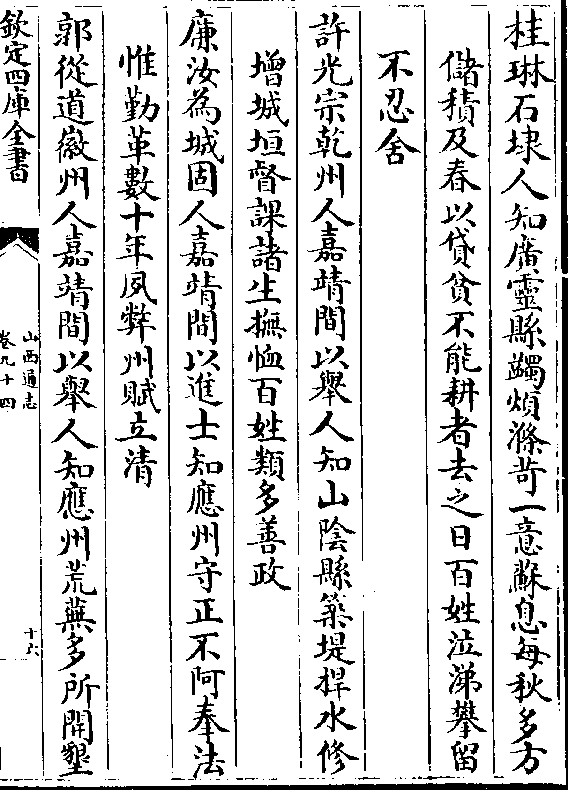 桂琳石埭人知廣靈縣蠲煩滌苛一意蘇息每秋多方
儲積及春以貸貧不能耕者去之日百姓泣涕攀留
不忍舍
許光宗乾州人嘉靖間以舉人知山陰縣築堤捍水修
增城垣督課諸生撫恤百姓類多善政
廉汝為城固人嘉靖間以進士知應州守正不阿奉法
惟勤革數十年夙弊州賦立清
郭從道徽州人嘉靖間以舉人知應州荒蕪多所開墾
欽定四庫全書
山西通志
卷九十四
十六